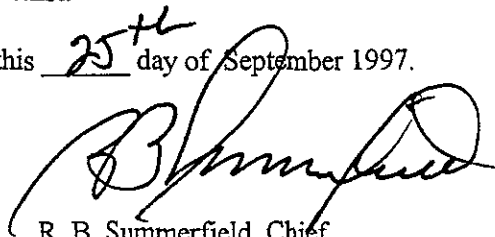 this 25th day of September 1997.
RB Summerfield
R. B. Summerfield, Chief